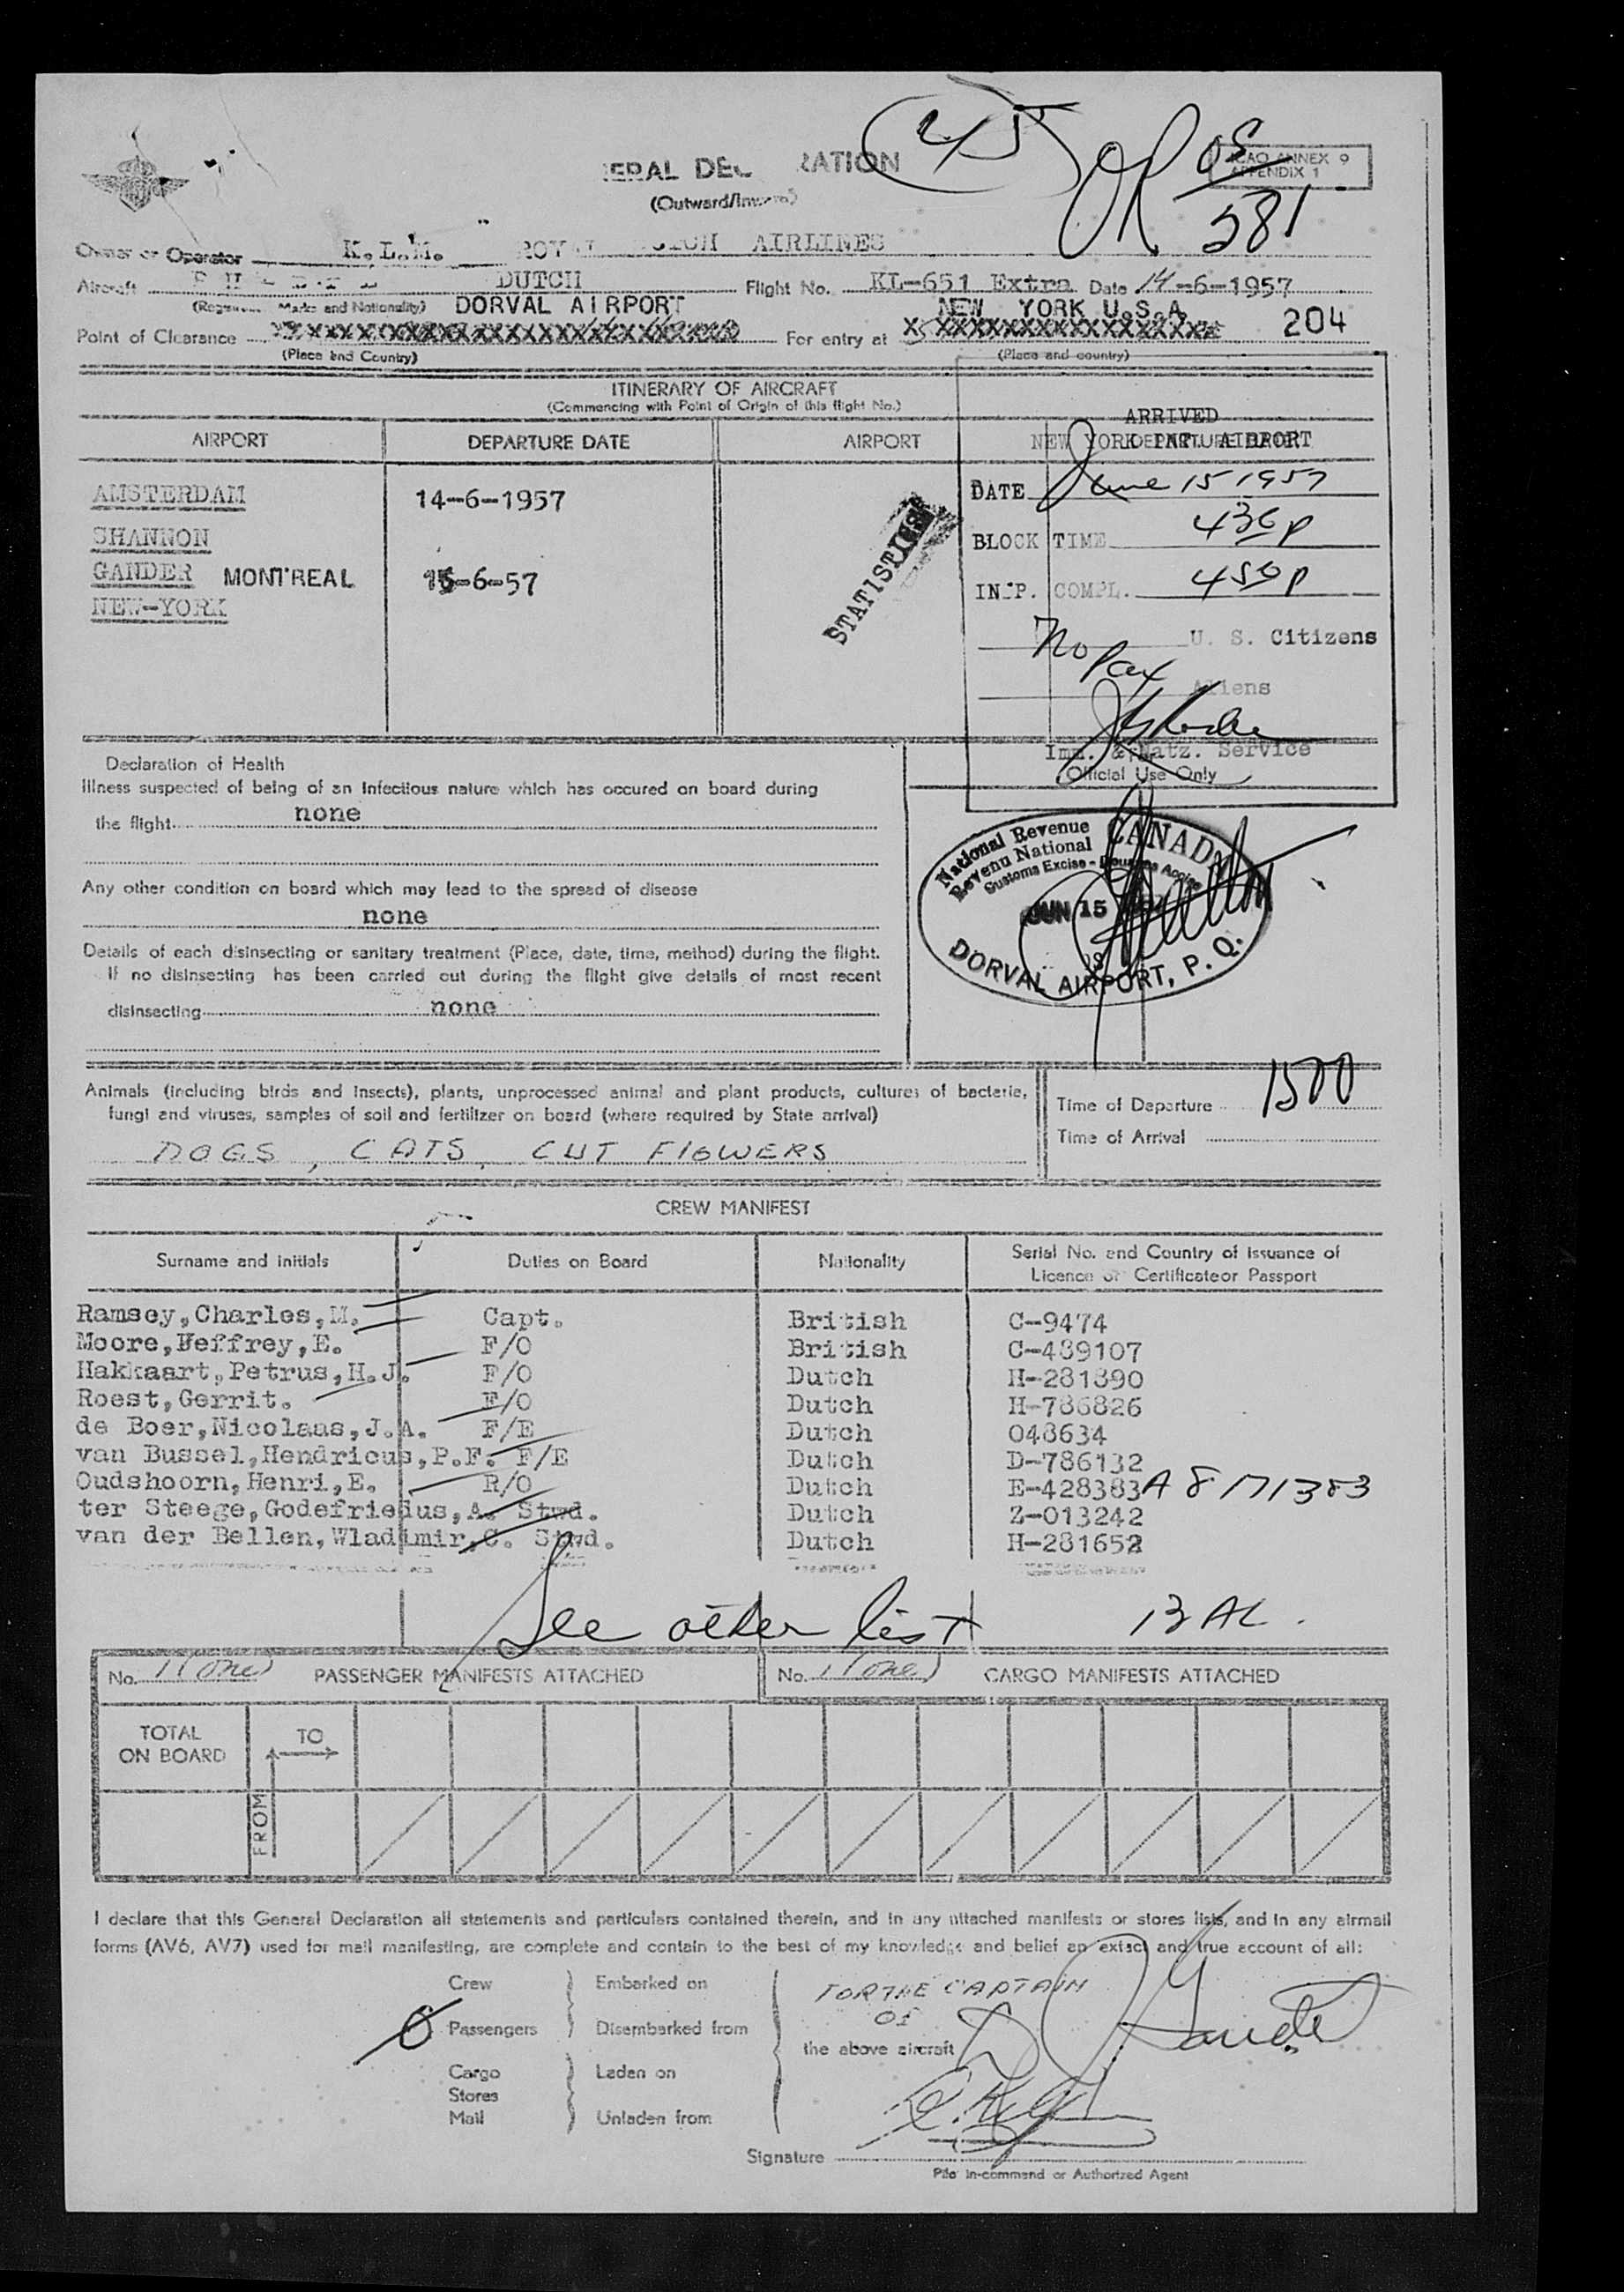 45
OR OS
581
ICAO ANNEX 9
APPENDIX 1
ERAL DEC RATION
(Outward/Inward)
Owner or Operator K.L.M. ROYAL DUTCH AIRLINES
Aircraft DUTCH Flight No. KL-651 Extra Date 14-6-1957
(Marks and Nationality) DORVAL AIRPORT NEW YORK U.S.A. 204
Point of Clearance For entry at
(Place and Country) (Place and country)
ITINERARY OF AIRCRAFT
(Commencing with Point of Origin of this flight No.)
AIRPORT DEPARTURE DATE AIRPORT DEPARTURE DATE
ARRIVED
NEW YORK INT. AIRPORT
AMSTERDAM 14-6-1957
SHANNON
GANDER MONTREAL 15-6-57
NEW-YORK
STATISTICS
DATE June 15 1957
BLOCK TIME 436p
INSP. COMPL. 450p
No Pax U. S. Citizens
Aliens
Imm. & Natz. Service
Official Use Only
Declaration of Health
Illness suspected of being of an infectious nature which has occured on board during
the flight none
Any other condition on board which may lead to the spread of disease
none
Details of each disinsecting or sanitary treatment (Place, date, time, method) during the flight.
If no disinsecting has been carried out during the flight give details of most recent
disinsecting none
National Revenue CANADA
Revenu National
Customs Excise - Douanes Accise
JUN 15
DORVAL AIRPORT, P. Q.
Animals (including birds and insects), plants, unprocessed animal and plant products, cultures of bacterie,
fungi and viruses, samples of soil and fertilizer on board (where required by State arrival)
DOGS, CATS, CUT FlOWERS
Time of Departure 1500
Time of Arrival
CREW MANIFEST
Surname and initials Duties on Board Nationality Serial No. and Country of Issuance of
Licence or Certificateor Passport
Ramsey,Charles,M. Capt. British C-9474
Moore,Jeffrey,E. F/O British C-489107
Hakkaart,Petrus,H.J. F/O Dutch H-281890
Roest,Gerrit. F/O Dutch H-786826
de Boer,Nicolaas,J.A. F/E Dutch 048634
van Bussel,Hendricus,P.F. F/E Dutch D-786132
Oudshoorn,Henri,E. R/O Dutch E-428383 A 8 171383
ter Steege,Godefriedus,A. Stwd. Dutch Z-013242
van der Bellen,Wladimir,C. Stwd. Dutch H-281652
See other list 13 AL.
No. 1 (one) PASSENGER MANIFESTS ATTACHED No. 1 (one) CARGO MANIFESTS ATTACHED
TOTAL
ON BOARD
TO
FROM
I declare that this General Declaration all statements and particulars contained therein, and in any attached manifests or stores lists, and in any airmail
forms (AV6, AV7) used for mail manifesting, are complete and contain to the best of my knowledge and belief an extact and true account of all:
Crew Embarked on
FOR THE CAPTAIN
OF
Passengers Disembarked from
the above aircraft
Cargo Laden on
Stores
Mail Unladen from
Signature
Pilot in-command or Authorized Agent